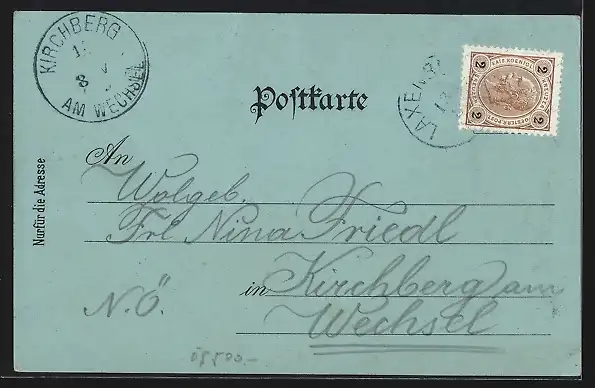 KIRCHBERG
AM WECHSEL
Postkarte
LAXENB
2 KAIS. KOENIGL. 2
2 OESTERR. POST 2
Nur für die Adresse
An
Wolgeb.
Frl Nina Friedl
in Kirchberg am
N.Ö. Wechsel